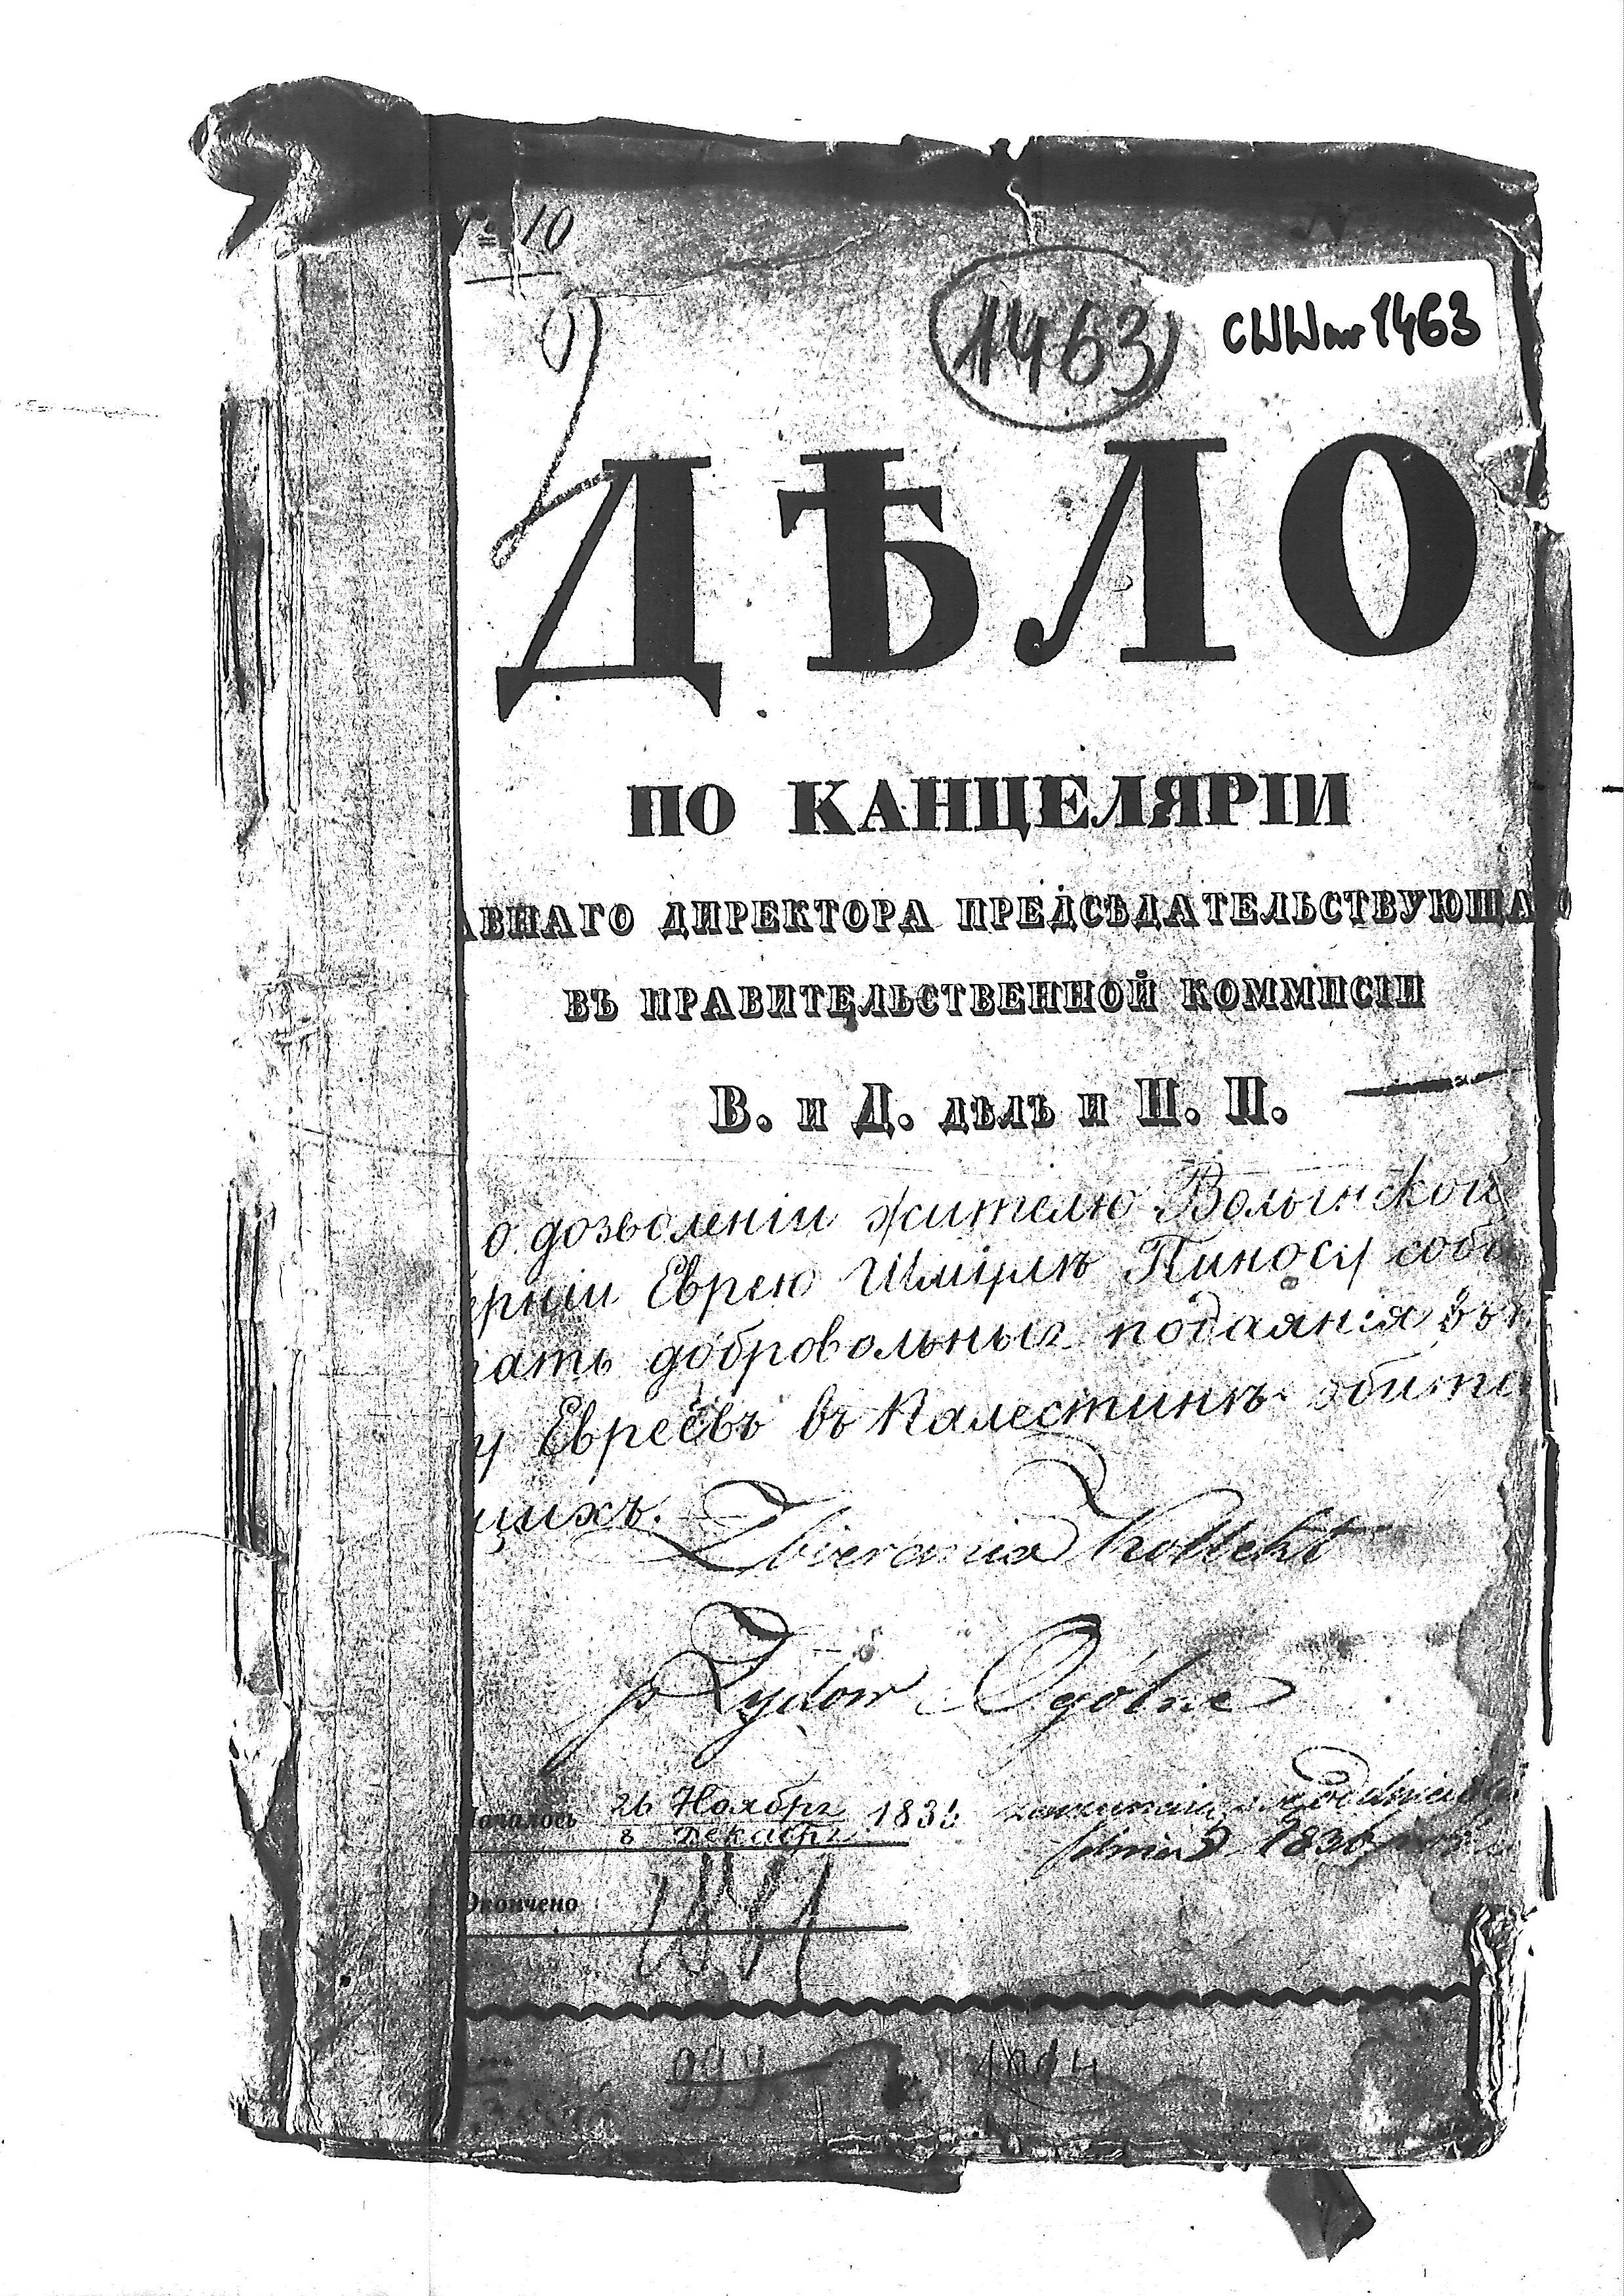 № 10
1463
CWW nr 1463
ДѢЛО
ПО КАНЦЕЛЯРІИ
АВНАГО ДИРЕКТОРА ПРЕДСѢДАТЕЛЬСТВУЮЩАГО
ВЪ ПРАВИТЕЛЬСТВЕННОЙ КОММИСІИ
В. и Д. дѣлъ и П. П.
о дозволеніи жителю Волынской
ерніи Еврею Шмулѣ Пиносу соби
рать добровольныя подаянія въ
у Евреевъ въ Палестинѣ обита
щихъ.
Zbierania Kollekt
p Żydów Ogólne
Началось 26 Ноября 183
8 Декабр
1830
Окончено
999